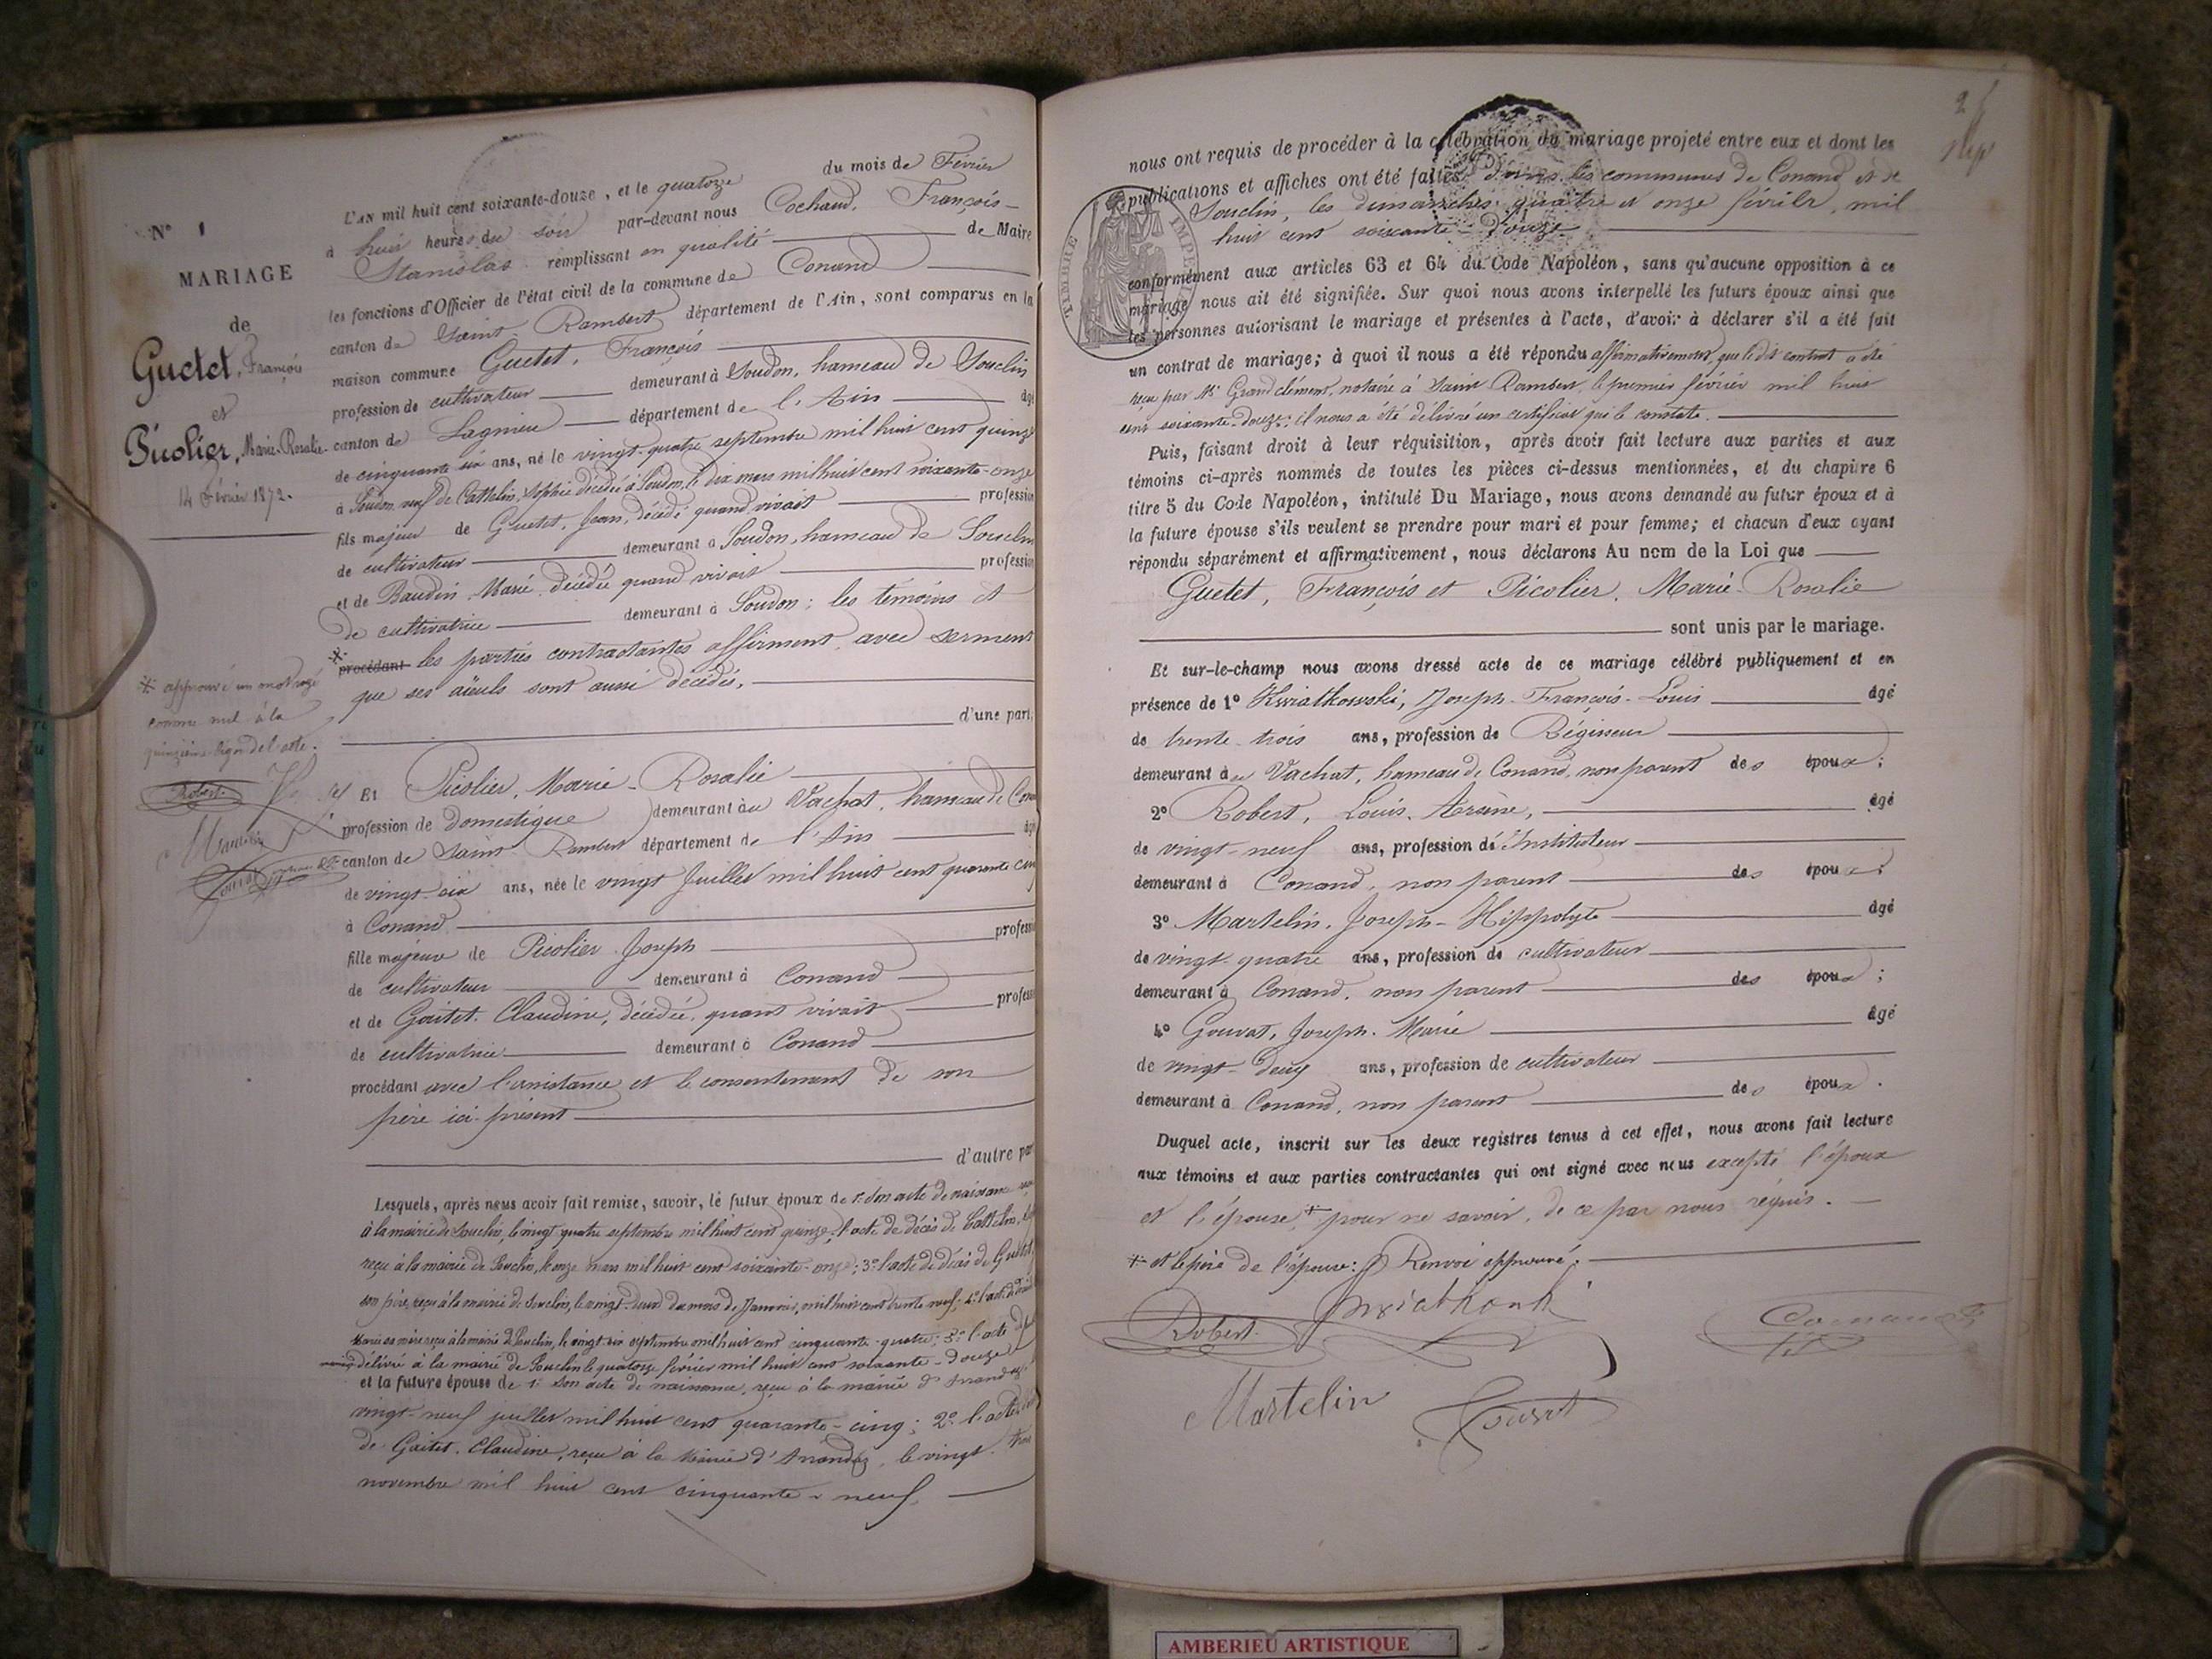 N° 1
MARIAGE
de
Guetet, François
et
Picolier, Marie-Rosalie
14 Février 1872.
* approuvé un mot rayé
comme nul à la
quinzième ligne de l'acte.
Robert
Martelin
L'AN mil huit cent soixante-douze, et le quatorze du mois de Février
à huit heures du soir par-devant nous Cochaud, François-
Stanislas remplissant en qualité de Maire
les fonctions d'Officier de l'état civil de la commune de Conand
canton de Saint-Rambert département de l'Ain, sont comparus en la
maison commune Guetet, François
profession de cultivateur demeurant à Soudon, hameau de Souclin
canton de Lagnieu département de l'Ain âgé
de cinquante six ans, né le vingt-quatre septembre mil huit cent quinze
à Soudon veuf de Cattelin, Sophie décédée à Soudon le dix mars mil huit cent soixante-onze
fils majeur de Guetet, Jean, décédé quand vivait profession
de cultivateur demeurant à Soudon, hameau de Souclin
et de Baudin, Marie, décédée quand vivait profession
de cultivatrice demeurant à Soudon; les témoins et
* procédant les parties contractantes affirment avec serment
que ses aïeuls sont aussi décédés,
d'une part,
Et Picolier, Marie-Rosalie
profession de domestique demeurant au Vachat, hameau de
canton de Saint-Rambert département de l'Ain
de vingt-six ans, née le vingt juillet mil huit cent quarante cinq
à Conand
fille majeure de Picolier Joseph profession
de cultivateur demeurant à Conand
et de Goitet Claudine, décédée, quant vivait profession
de cultivatrice demeurant à Conand
procédant avec l'assistance et le consentement de son
père ici présent
d'autre part
Lesquels, après nous avoir fait remise, savoir, le futur époux de 1° son acte de naissance
à la mairie de Souclin, le vingt quatre septembre mil huit cent quinze; l'acte de décès de Cattelin,
reçu à la mairie de Souclin, le onze mars mil huit cent soixante-onze; 3° l'acte de décès de Guetet,
son père, reçu à la mairie de Souclin, le vingt-deux du mois de Janvier, mil huit cent trente neuf; 4° l'acte de
Marie sa mère reçu à la mairie de Souclin, le vingt-six septembre mil huit cent cinquante-quatre; 5° l'acte de
délivré à la mairie de Souclin le quatorze février mil huit cent soixante-douze
et la future épouse de 1° son acte de naissance, reçu à la mairie d'Arandas
vingt-neuf juillet mil huit cent quarante-cinq; 2° l'acte
de Goitet Claudine, reçu à la Mairie d'Arandas, le vingt-trois
novembre mil huit cent cinquante-neuf,
2
nous ont requis de procéder à la célébration du mariage projeté entre eux et dont les
publications et affiches ont été faites dans les communes de Conand et de
Souclin, les dimanches quatre et onze février, mil
huit cent soixante-douze
TIMBRE IMPE
conformément aux articles 63 et 64 du Code Napoléon, sans qu'aucune opposition à ce
mariage nous ait été signifiée. Sur quoi nous avons interpellé les futurs époux ainsi que
les personnes autorisant le mariage et présentes à l'acte, d'avoir à déclarer s'il a été fait
un contrat de mariage; à quoi il nous a été répondu affirmativement, que le dit contrat a été
reçu par Me Grandclément, notaire à Saint Rambert le premier février mil huit
cent soixante-douze; il nous a été délivré un certificat qui le constate.
Puis, faisant droit à leur réquisition, après avoir fait lecture aux parties et aux
témoins ci-après nommés de toutes les pièces ci-dessus mentionnées, et du chapitre 6
titre 5 du Code Napoléon, intitulé Du Mariage, nous avons demandé au futur époux et à
la future épouse s'ils veulent se prendre pour mari et pour femme; et chacun d'eux ayant
répondu séparément et affirmativement, nous déclarons Au nom de la Loi que
Guetet, François et Picolier, Marie-Rosalie
sont unis par le mariage.
Et sur-le-champ nous avons dressé acte de ce mariage célébré publiquement et en
présence de 1° Kwiatkowski, Joseph-François-Louis âgé
de trente-trois ans, profession de Régisseur
demeurant à au Vachat, hameau de Conand, non parent des époux;
2° Robert, Louis, Arsène, âgé
de vingt-neuf ans, profession de Instituteur
demeurant à Conand, non parent des époux;
3° Martelin, Joseph-Hippolyte âgé
de vingt-quatre ans, profession de cultivateur
demeurant à Conand, non parent des époux;
4° Gouvat, Joseph-Marie âgé
de vingt-deux ans, profession de cultivateur
demeurant à Conand, non parent des époux.
Duquel acte, inscrit sur les deux registres tenus à cet effet, nous avons fait lecture
aux témoins et aux parties contractantes qui ont signé avec nous excepté l'époux
et l'épouse * pour ne savoir, de ce par nous requis.
* et le père de l'épouse: Renvoi approuvé.
Robert
Martelin
Gouvat
AMBERIEU ARTISTIQUE